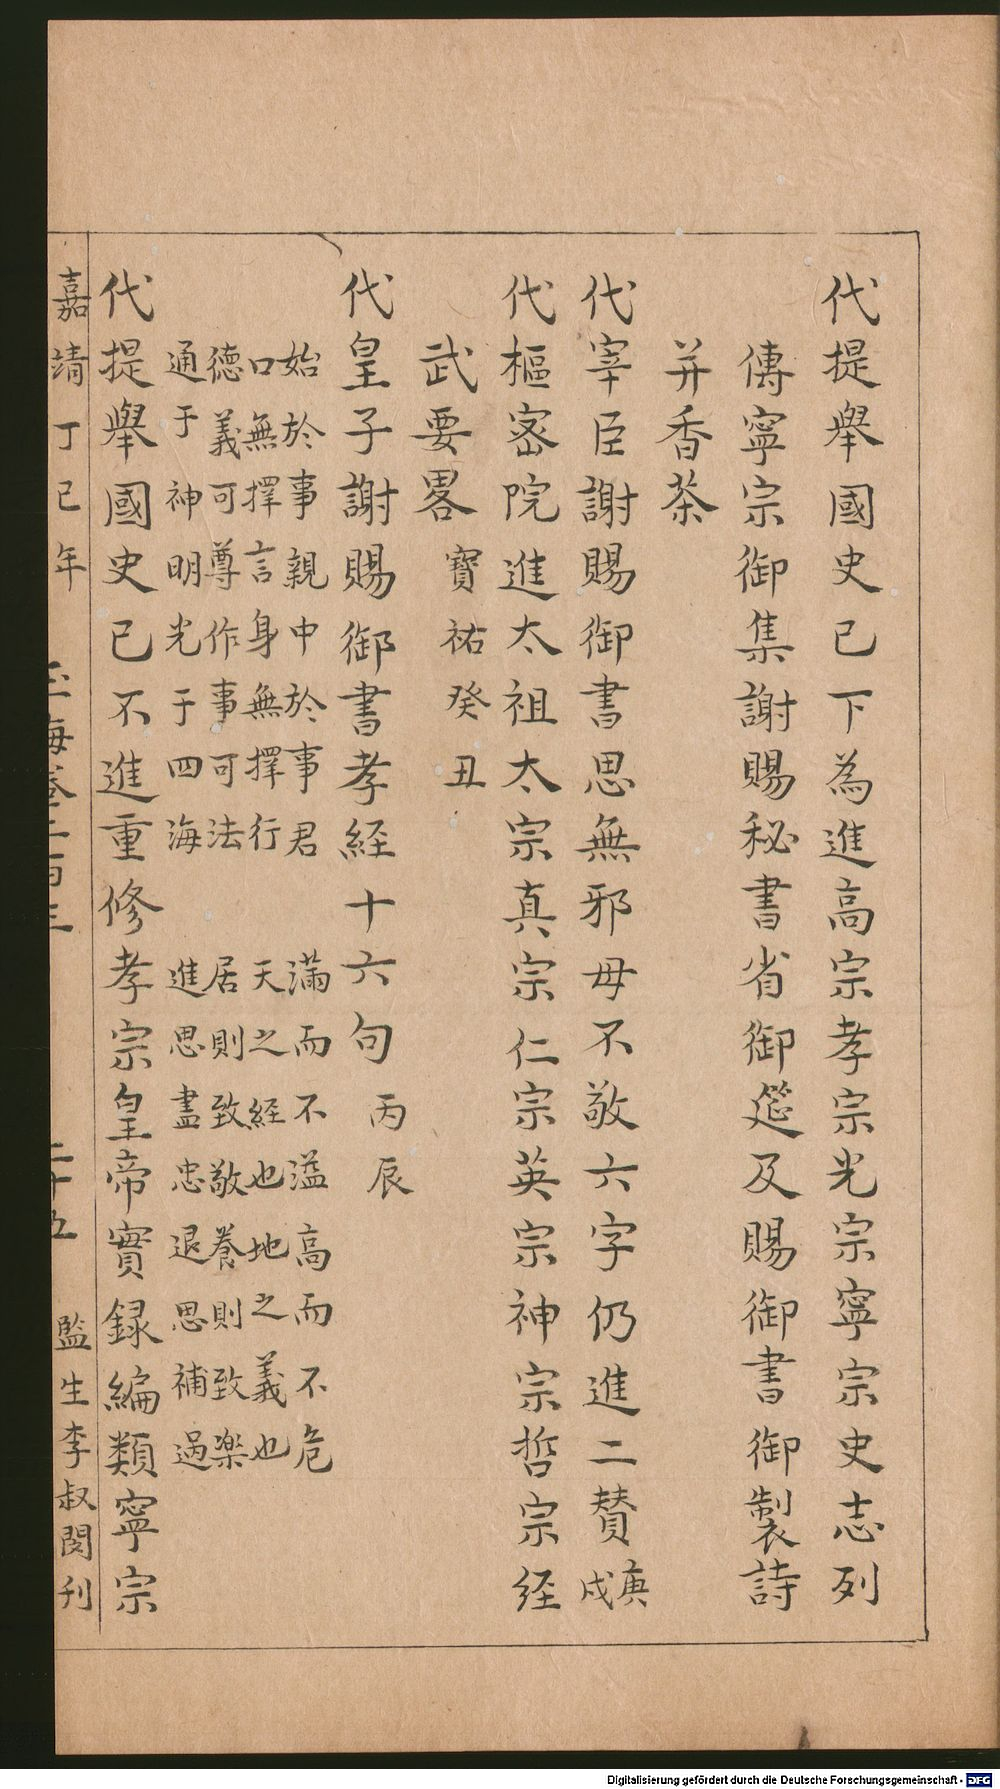 代提舉國史已下為進高宗孝宗光宗寧宗史志列
傳寧宗御集謝賜秘書省御筵及賜御書御製詩
并香茶
代宰臣謝賜御書思無邪毋不敬六字仍進二賛庚戌
代樞宻院進太祖太宗真宗仁宗英宗神宗哲宗経
武要畧寳祐癸丑
代皇子謝賜御書孝経十六句丙辰
始於事親中於事君 滿而不溢高而不危
口無擇言身無擇行 天之経也地之義也
德義可尊作事可法 居則致敬養則致楽
通于神明光于四海 進思盡忠退思補過
代提舉國史已不進重修孝宗皇帝實録編類寧宗
嘉靖丁巳年 玉海卷二百三 二十五 監生李叔閔刊
Digitalisierung gefördert durch die Deutsche Forschungsgemeinschaft - DFG